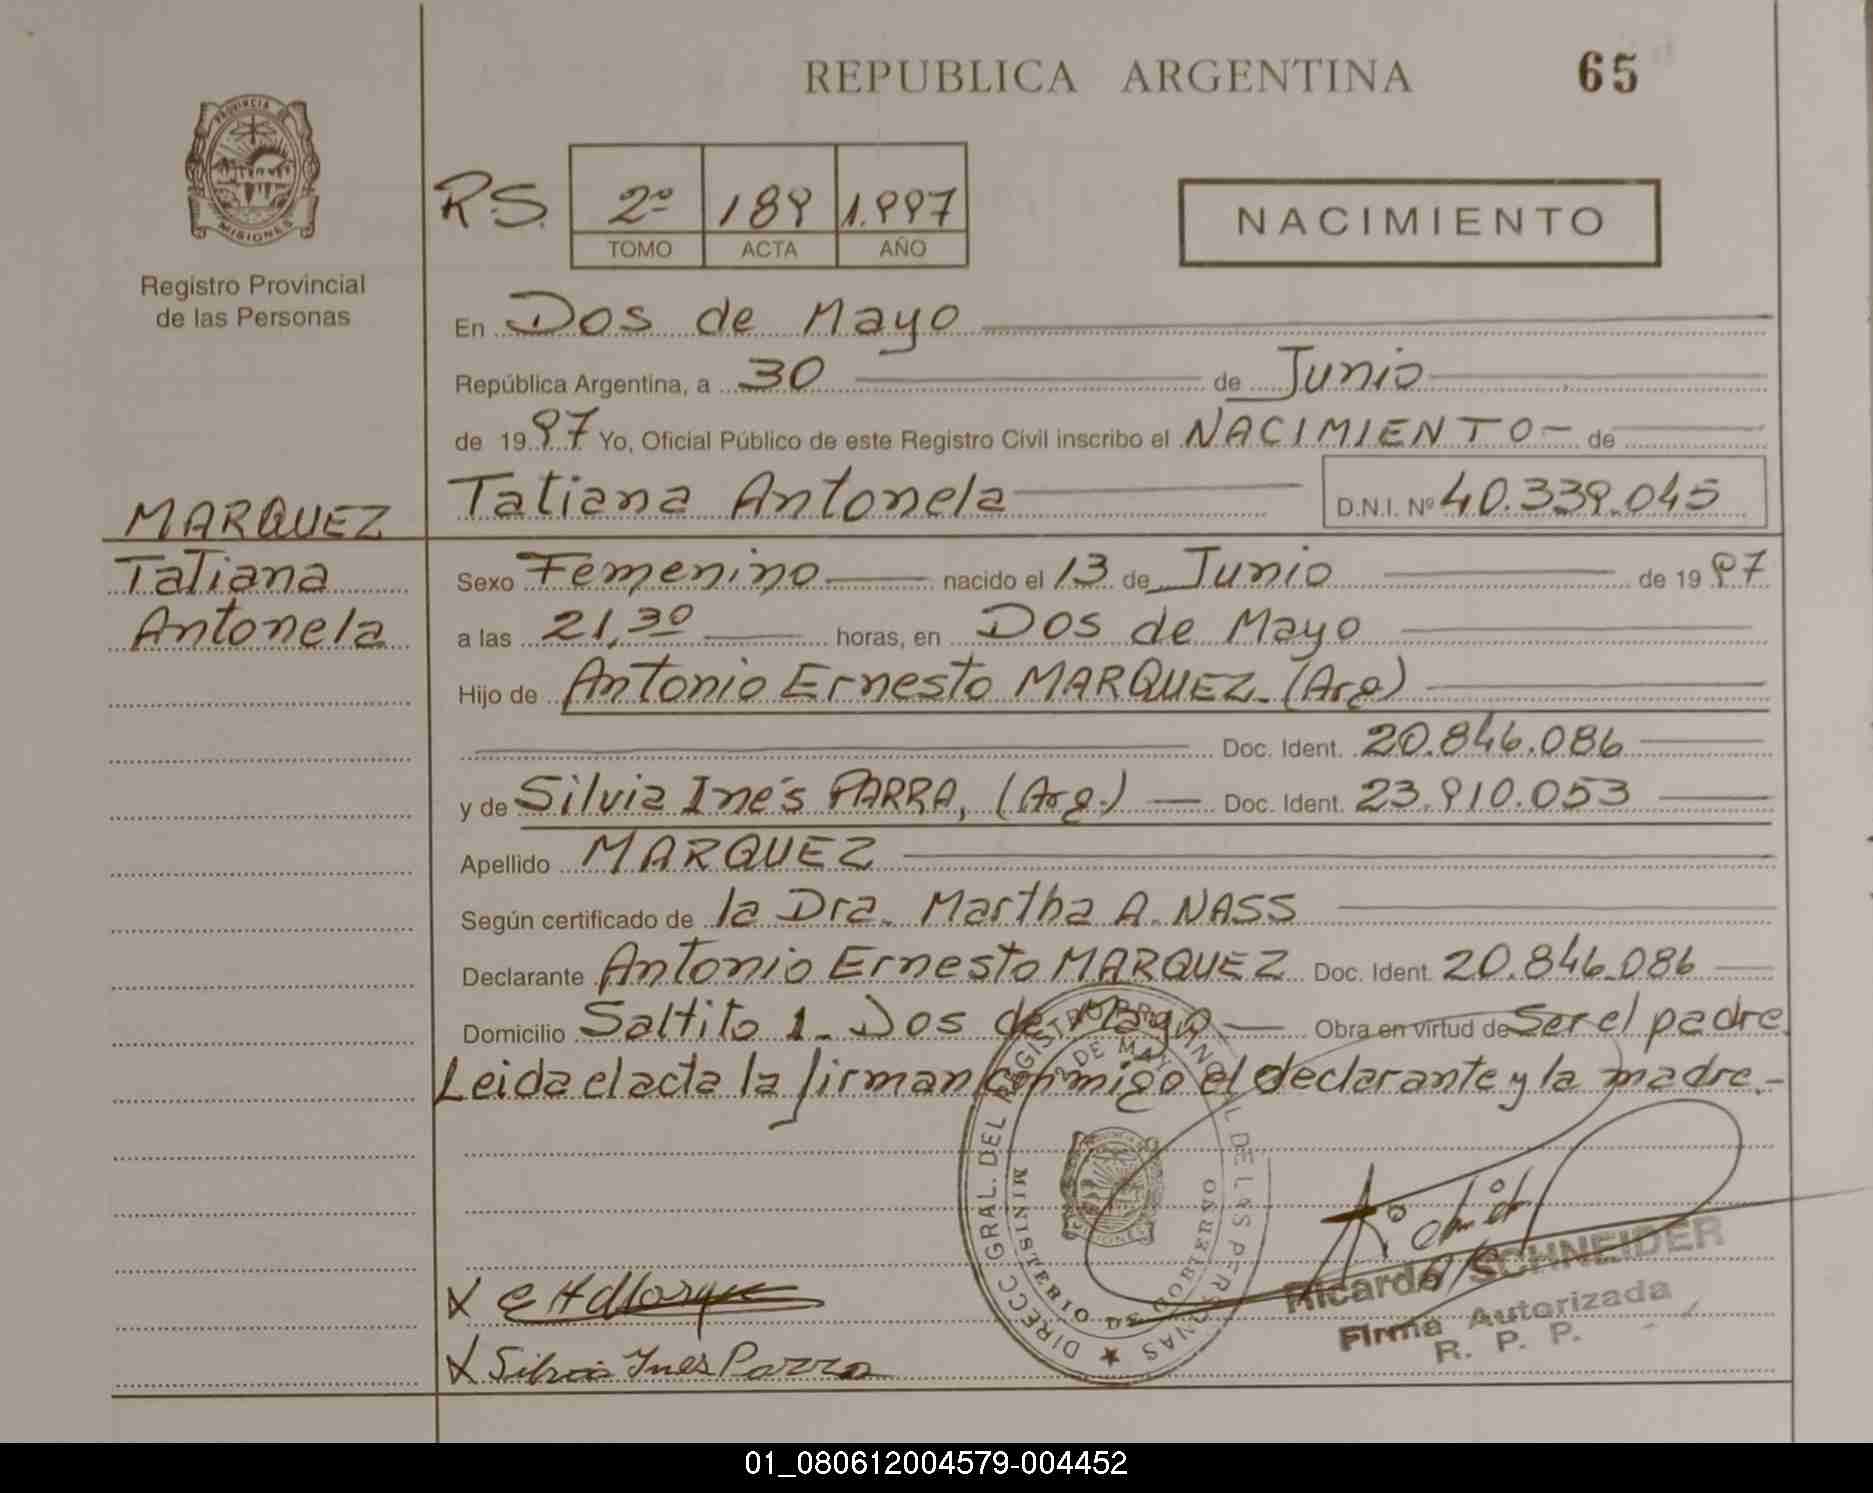 REPUBLICA ARGENTINA 65
PROVINCIA DE
MISIONES
Registro Provincial
de las Personas
R.S.
2º 189 1.997
TOMO ACTA AÑO
NACIMIENTO
En Dos de Mayo
República Argentina, a 30 de Junio
de 1997 Yo, Oficial Público de este Registro Civil inscribo el NACIMIENTO- de
Tatiana Antonela D.N.I. Nº 40.339.045
MARQUEZ
Tatiana
Antonela
Sexo Femenino nacido el 13 de Junio de 1997
a las 21,30 horas, en Dos de Mayo
Hijo de Antonio Ernesto MARQUEZ. (Arg)
Doc. Ident. 20.846.086
y de Silvia Inés PARRA, (Arg.) Doc. Ident. 23.910.053
Apellido MARQUEZ
Según certificado de la Dra. Martha A. NASS
Declarante Antonio Ernesto MARQUEZ Doc. Ident. 20.846.086
Domicilio Saltito 1- Dos de Mayo Obra en virtud de Ser el padre
Leida el acta la firman conmigo el declarante y la madre.-
DIRECC. GRAL. DEL REGISTRO PROVINCIAL DE LAS PERSONAS
2 DE MAYO
MINISTERIO DE GOBIERNO
MISIONES
Ricardo SCHNEIDER
Firma Autorizada
R. P. P.
X
X Silvia Ines Parra
01_080612004579-004452